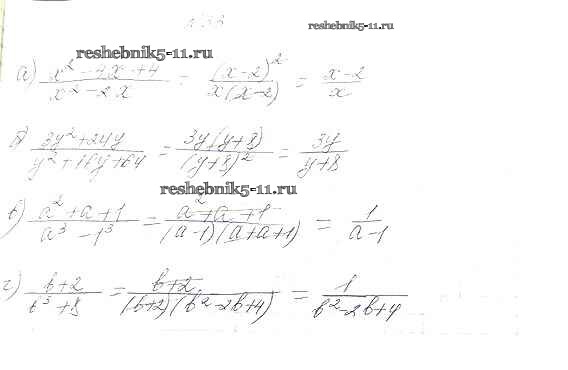 №32
reshebnik5-11.ru
reshebnik5-11.ru
а) (x² - 4x + 4)/(x² - 2x) = (x-2)²/(x(x-2)) = (x-2)/x
б) (3y² + 24y)/(y² + 16y + 64) = 3y(y+8)/(y+8)² = 3y/(y+8)
reshebnik5-11.ru
в) (a² + a + 1)/(a³ - 1³) = (a² + a + 1)/((a-1)(a+a+1)) = 1/(a-1)
г) (b+2)/(b³ + 8) = (b+2)/((b+2)(b² - 2b + 4)) = 1/(b² - 2b + 4)